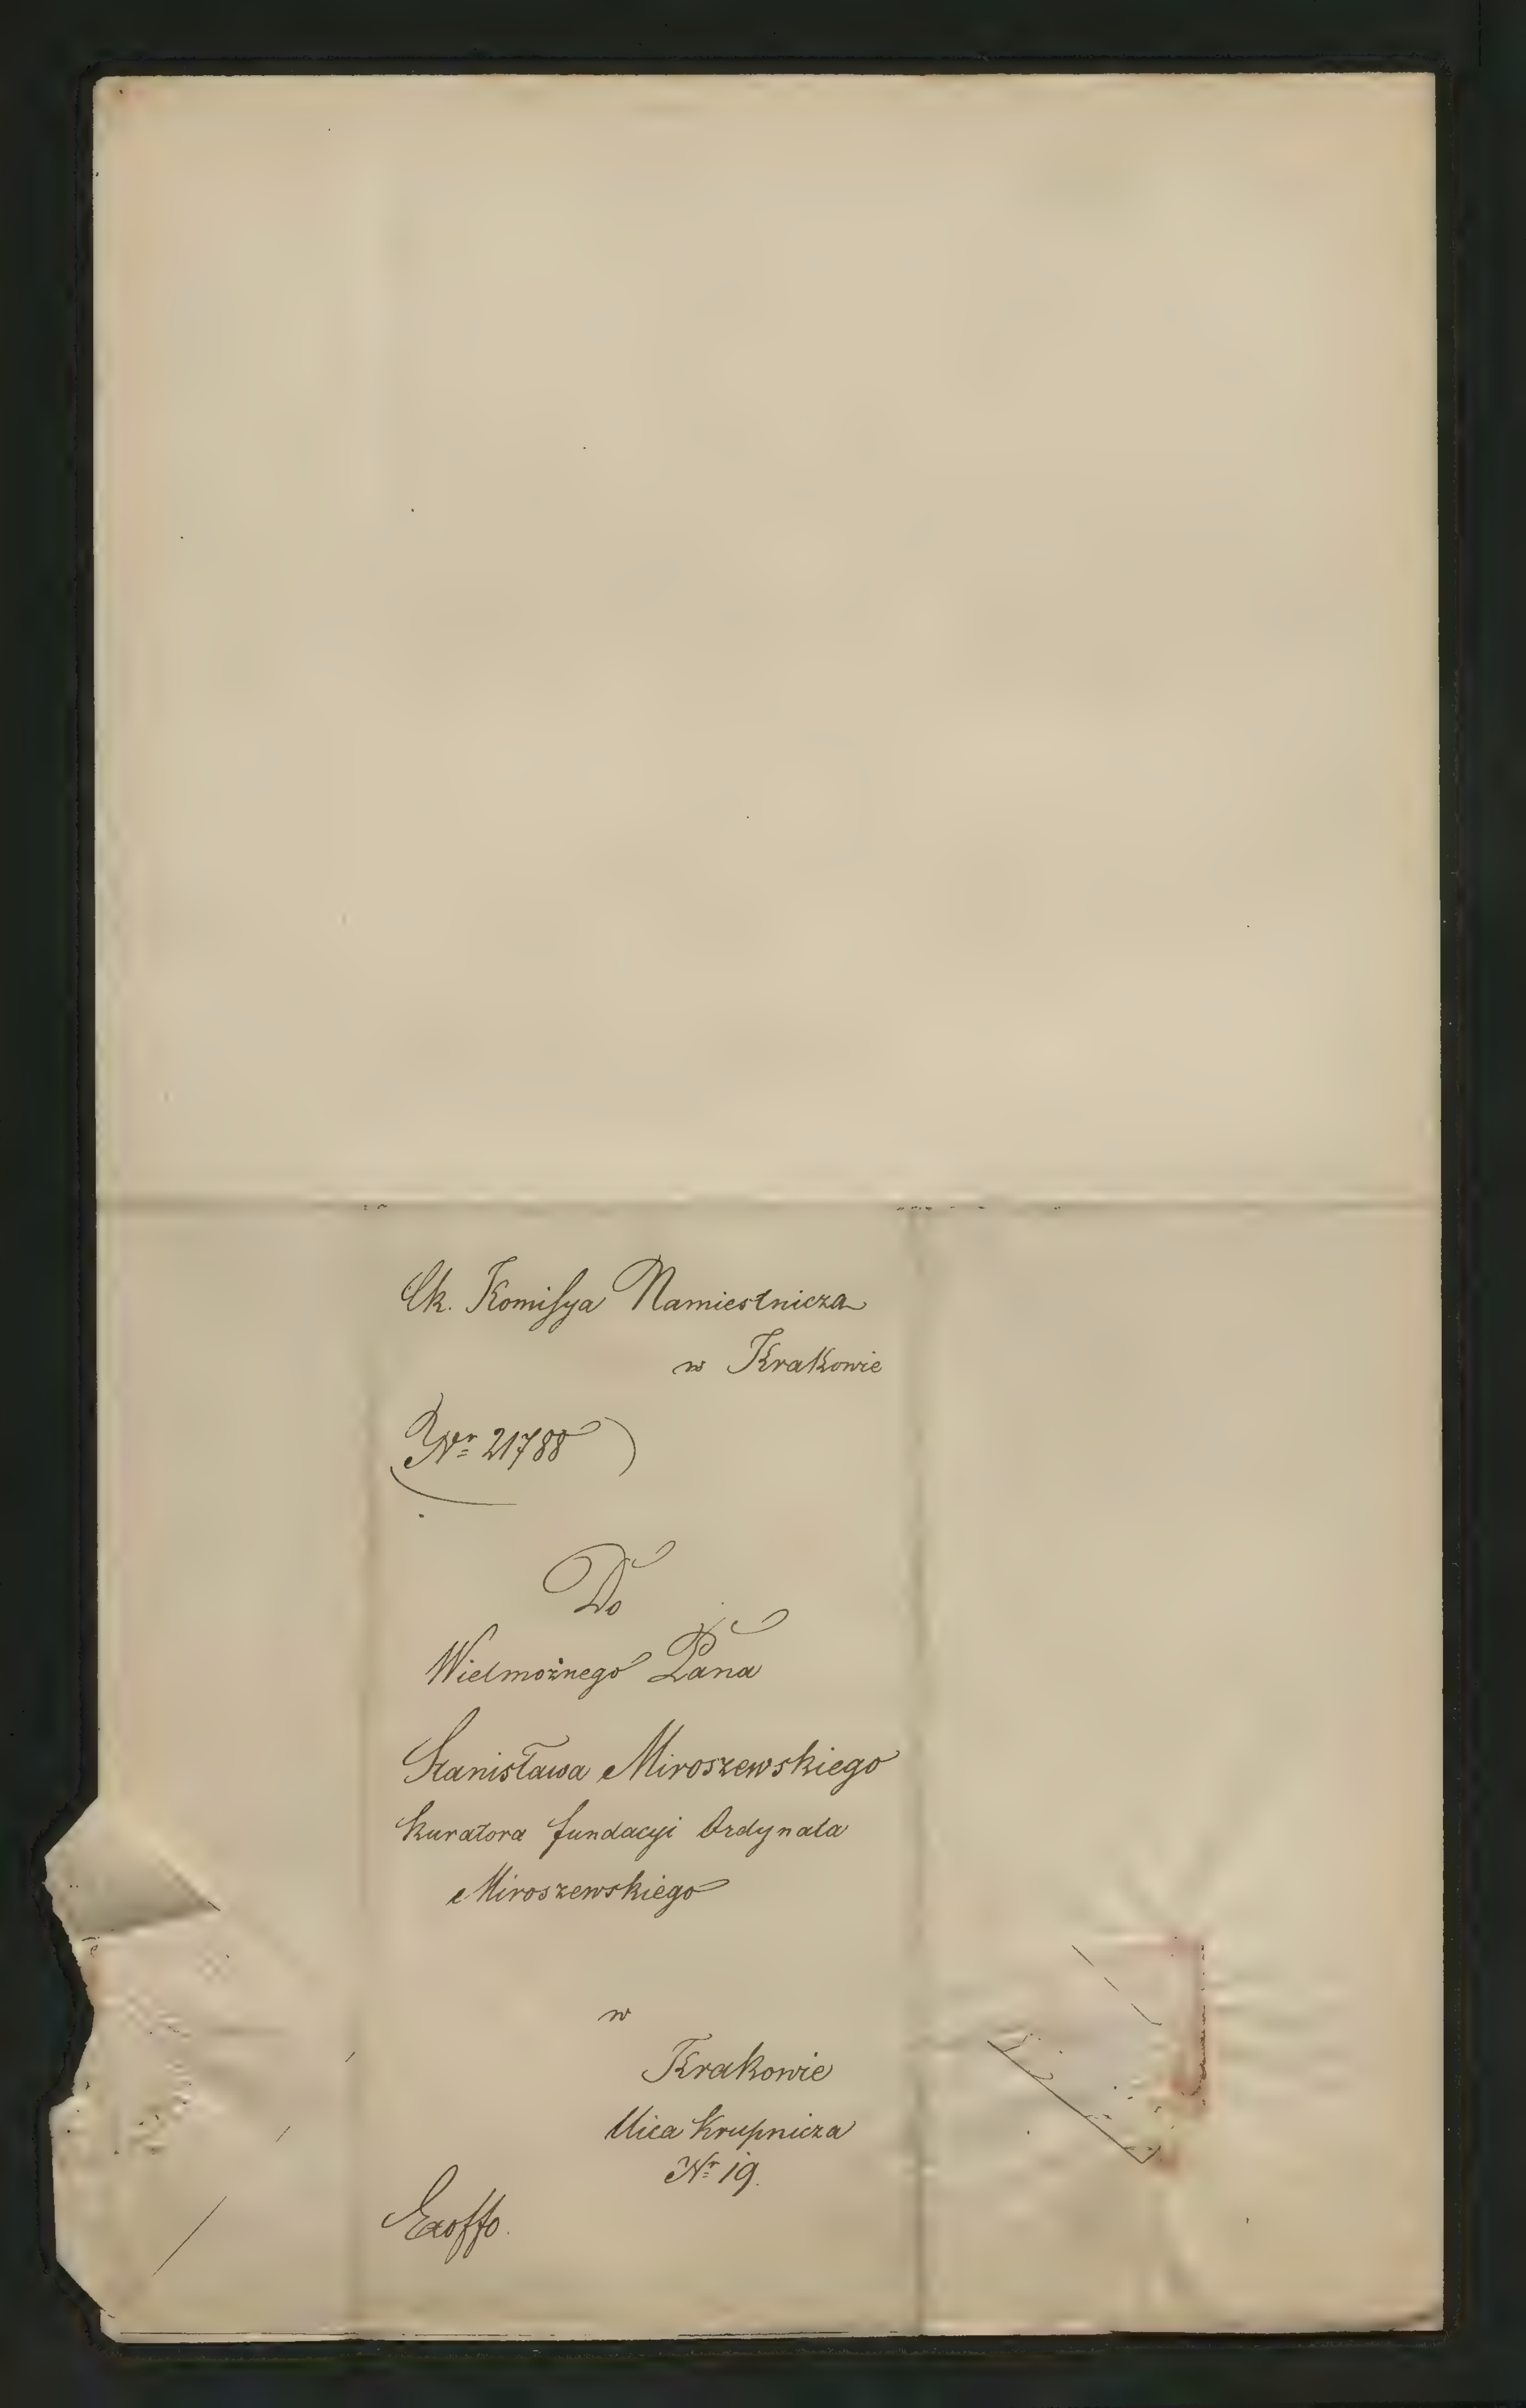 Ck. Komisya Namiestnicza
w Krakowie
Nr 21788
Do
Wielmożnego Pana
Stanisława Miroszewskiego
Kuratora fundacyi Ordynata
Miroszewskiego
w
Krakowie
Ulica Krupnicza
Nr 19.
Exoffo.